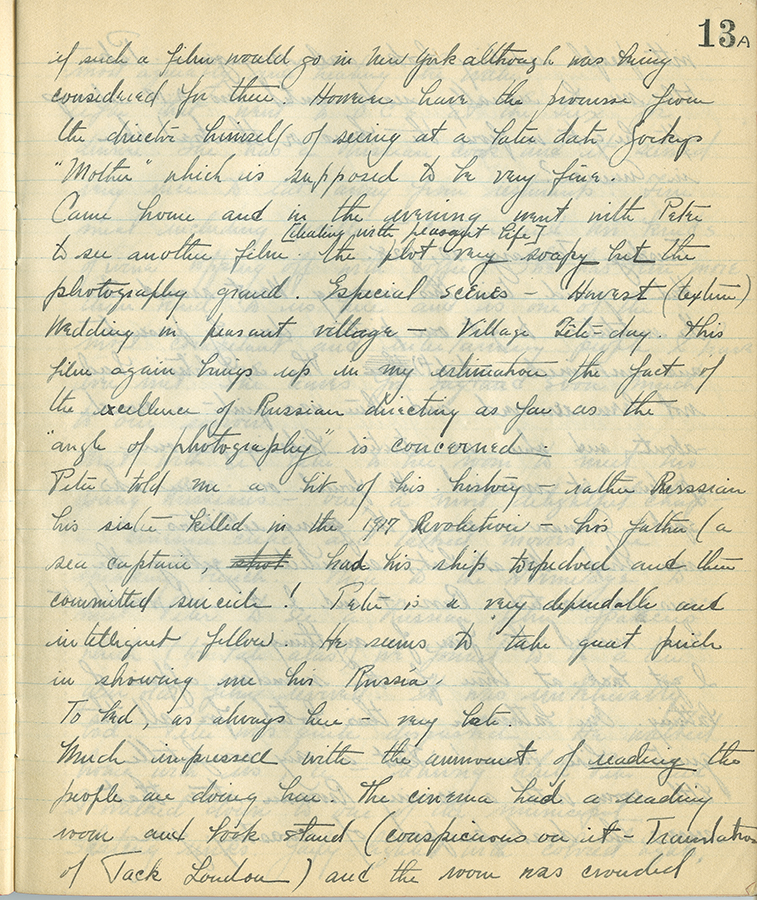 13A
if such a film would go in New York although was being
considered for there. However have the promise from
the director himself of seeing at a later date Gorky's
"Mother" which is supposed to be very fine.
Came home and in the evening went with Peter
[dealing with peasant life]
to see another film. The plot very soapy but the
photography grand. Especial scenes – Harvest (texture)
Wedding in peasant village – Village Fête-day. This
film again brings up in my estimation the fact of
the excellence of Russian directing as far as the
"angle of photography" is concerned.
Peter told me a bit of his history – rather Russian
his sister killed in the 1917 Revolution – his father (a
sea captain, shot had his ship torpedoed and then
committed suicide! Peter is a very dependable and
intelligent fellow. He seems to take great pride
in showing me his Russia.
To bed, as always here – very late.
Much impressed with the ammount of reading the
people are doing here. The cinema had a reading
room and book stand (conspicuous on it – Translations
of Jack London) and the room was crowded